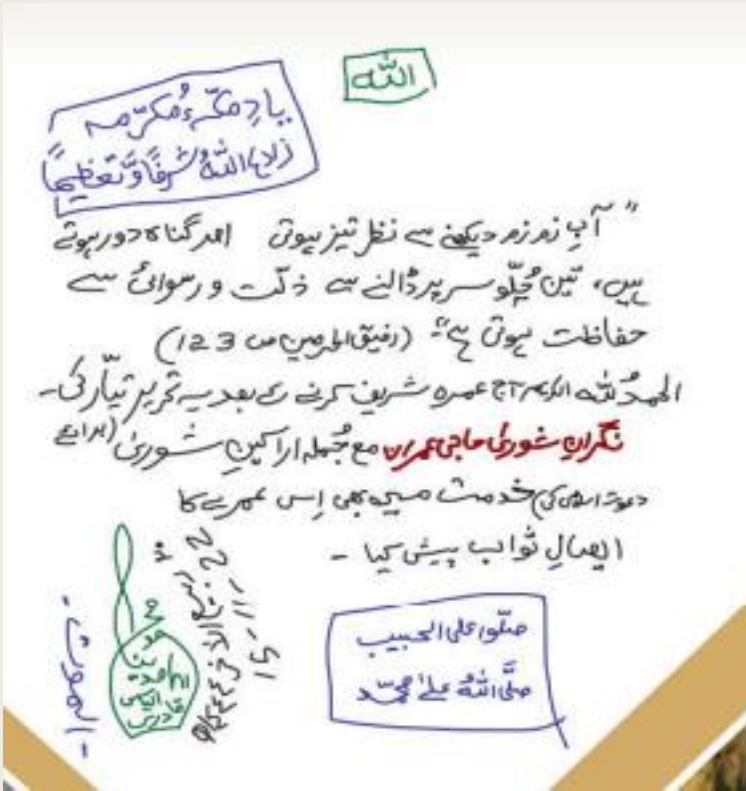 الله
یادِ مکّۂ مُکرّمہ
زادہا اللہُ شرفًا وَّ تعظیمًا
"آبِ زم زم دیکھنے سے نظر تیز ہوتی اور گناہ دور ہوتے
ہیں، تین چُلّو سر پر ڈالنے سے ذلّت و رسوائی سے
حفاظت ہوتی ہے" (رفیق الحرمین ص 123)
الحمدُ للّٰہ الکریم آج عمرہ شریف کرنے کے بعد یہ تحریر تیّار کی۔
نگرانِ شوریٰ حاجی عمران مع جُملہ اراکینِ شوریٰ (برائے
دعوتِ اسلامی) کی خدمت میں بھی اِس عمرے کا
ایصالِ ثواب پیش کیا ۔
صلّوا علی الحبیب
صلَّی اللہُ علیٰ محمّد
الموت